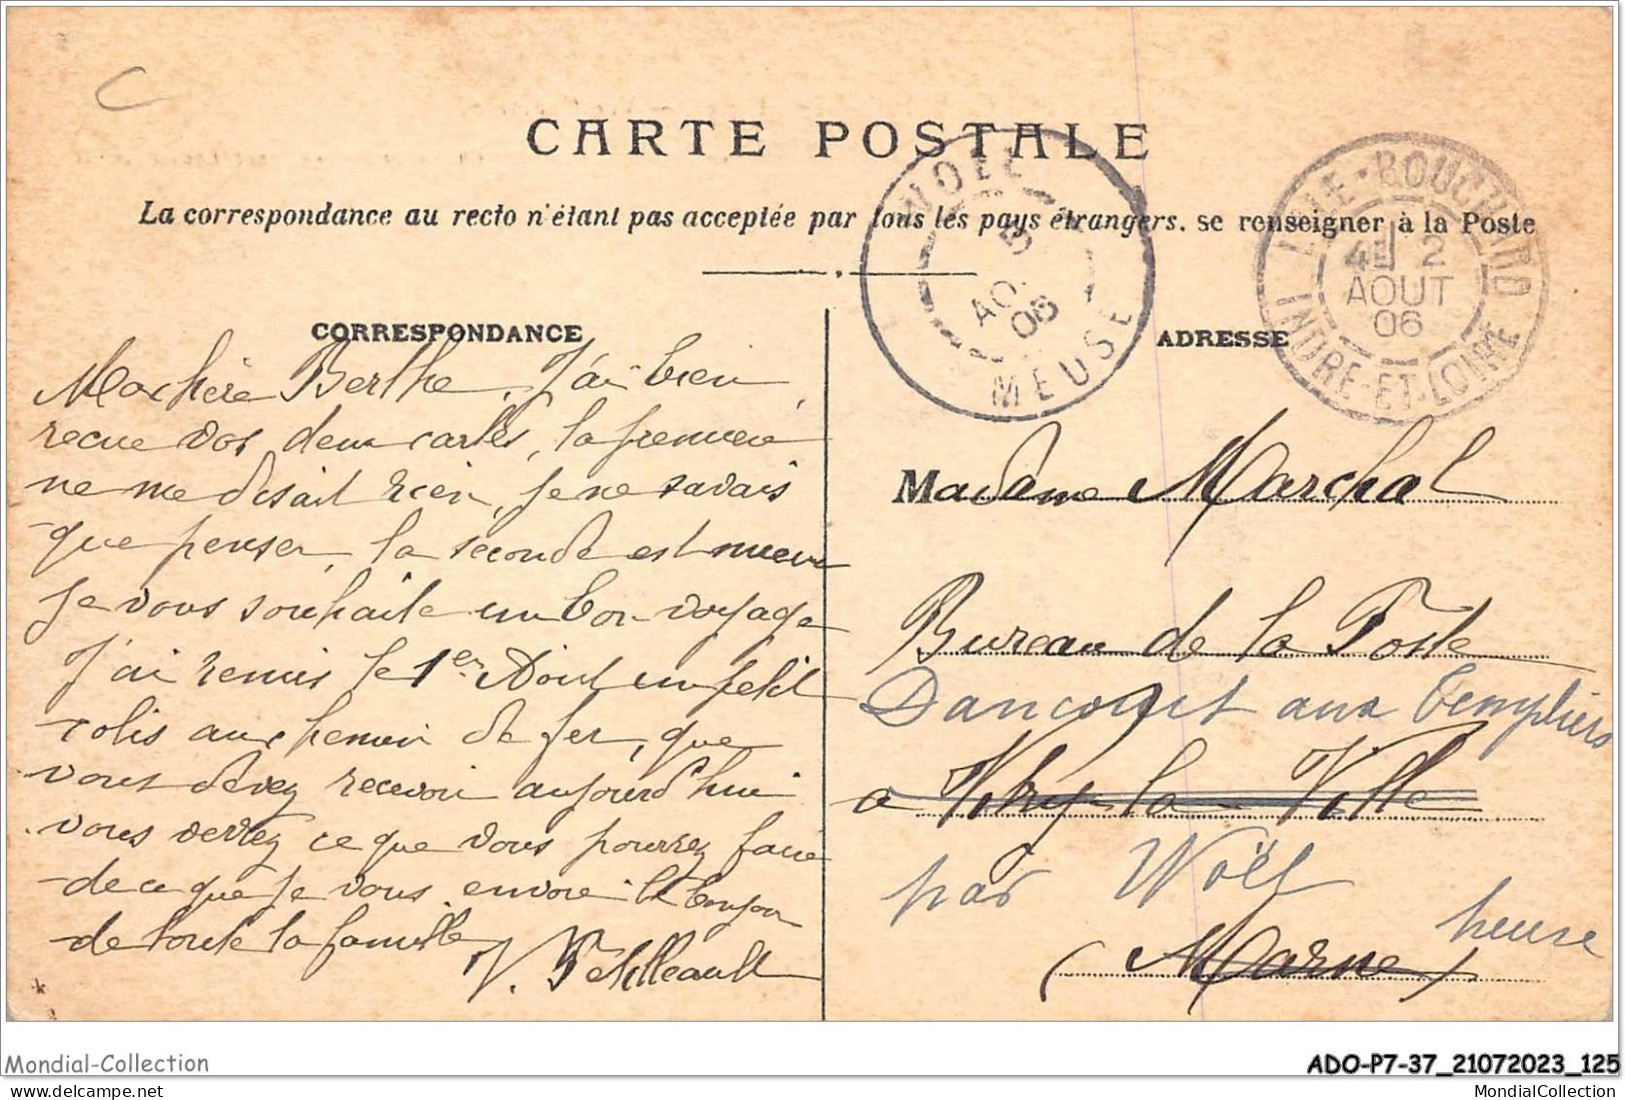 CARTE POSTALE
La correspondance au recto n'étant pas acceptée par tous les pays étrangers. se renseigner à la Poste
WOEL
5
AO.
06
MEUSE
L'ILE-BOUCHARD
4E 2
AOUT
06
INDRE-ET-LOIRE
CORRESPONDANCE
Ma chère Berthe, J'ai bien
recue vos deux cartes, la première
ne me disait rien, je ne savais
que penser, la seconde est mieux
Je vous souhaite un bon voyage
J'ai remis le 1er Aout un petit
colis au chemin de fer, que
vous devez recevoir aujourd'hui
vous verrez ce que vous pourrez faire
de ce que je vous envoie le bonjour
de toute la famille
V. Petilleault
ADRESSE
Madame Marchal
Bureau de la Poste
Dancourt aux templiers
a Vitry la Ville
par Wöel
heuse
(Marne)
Mondial-Collection
ADO-P7-37_21072023_125
Mondial-Collection.com
MondialCollection